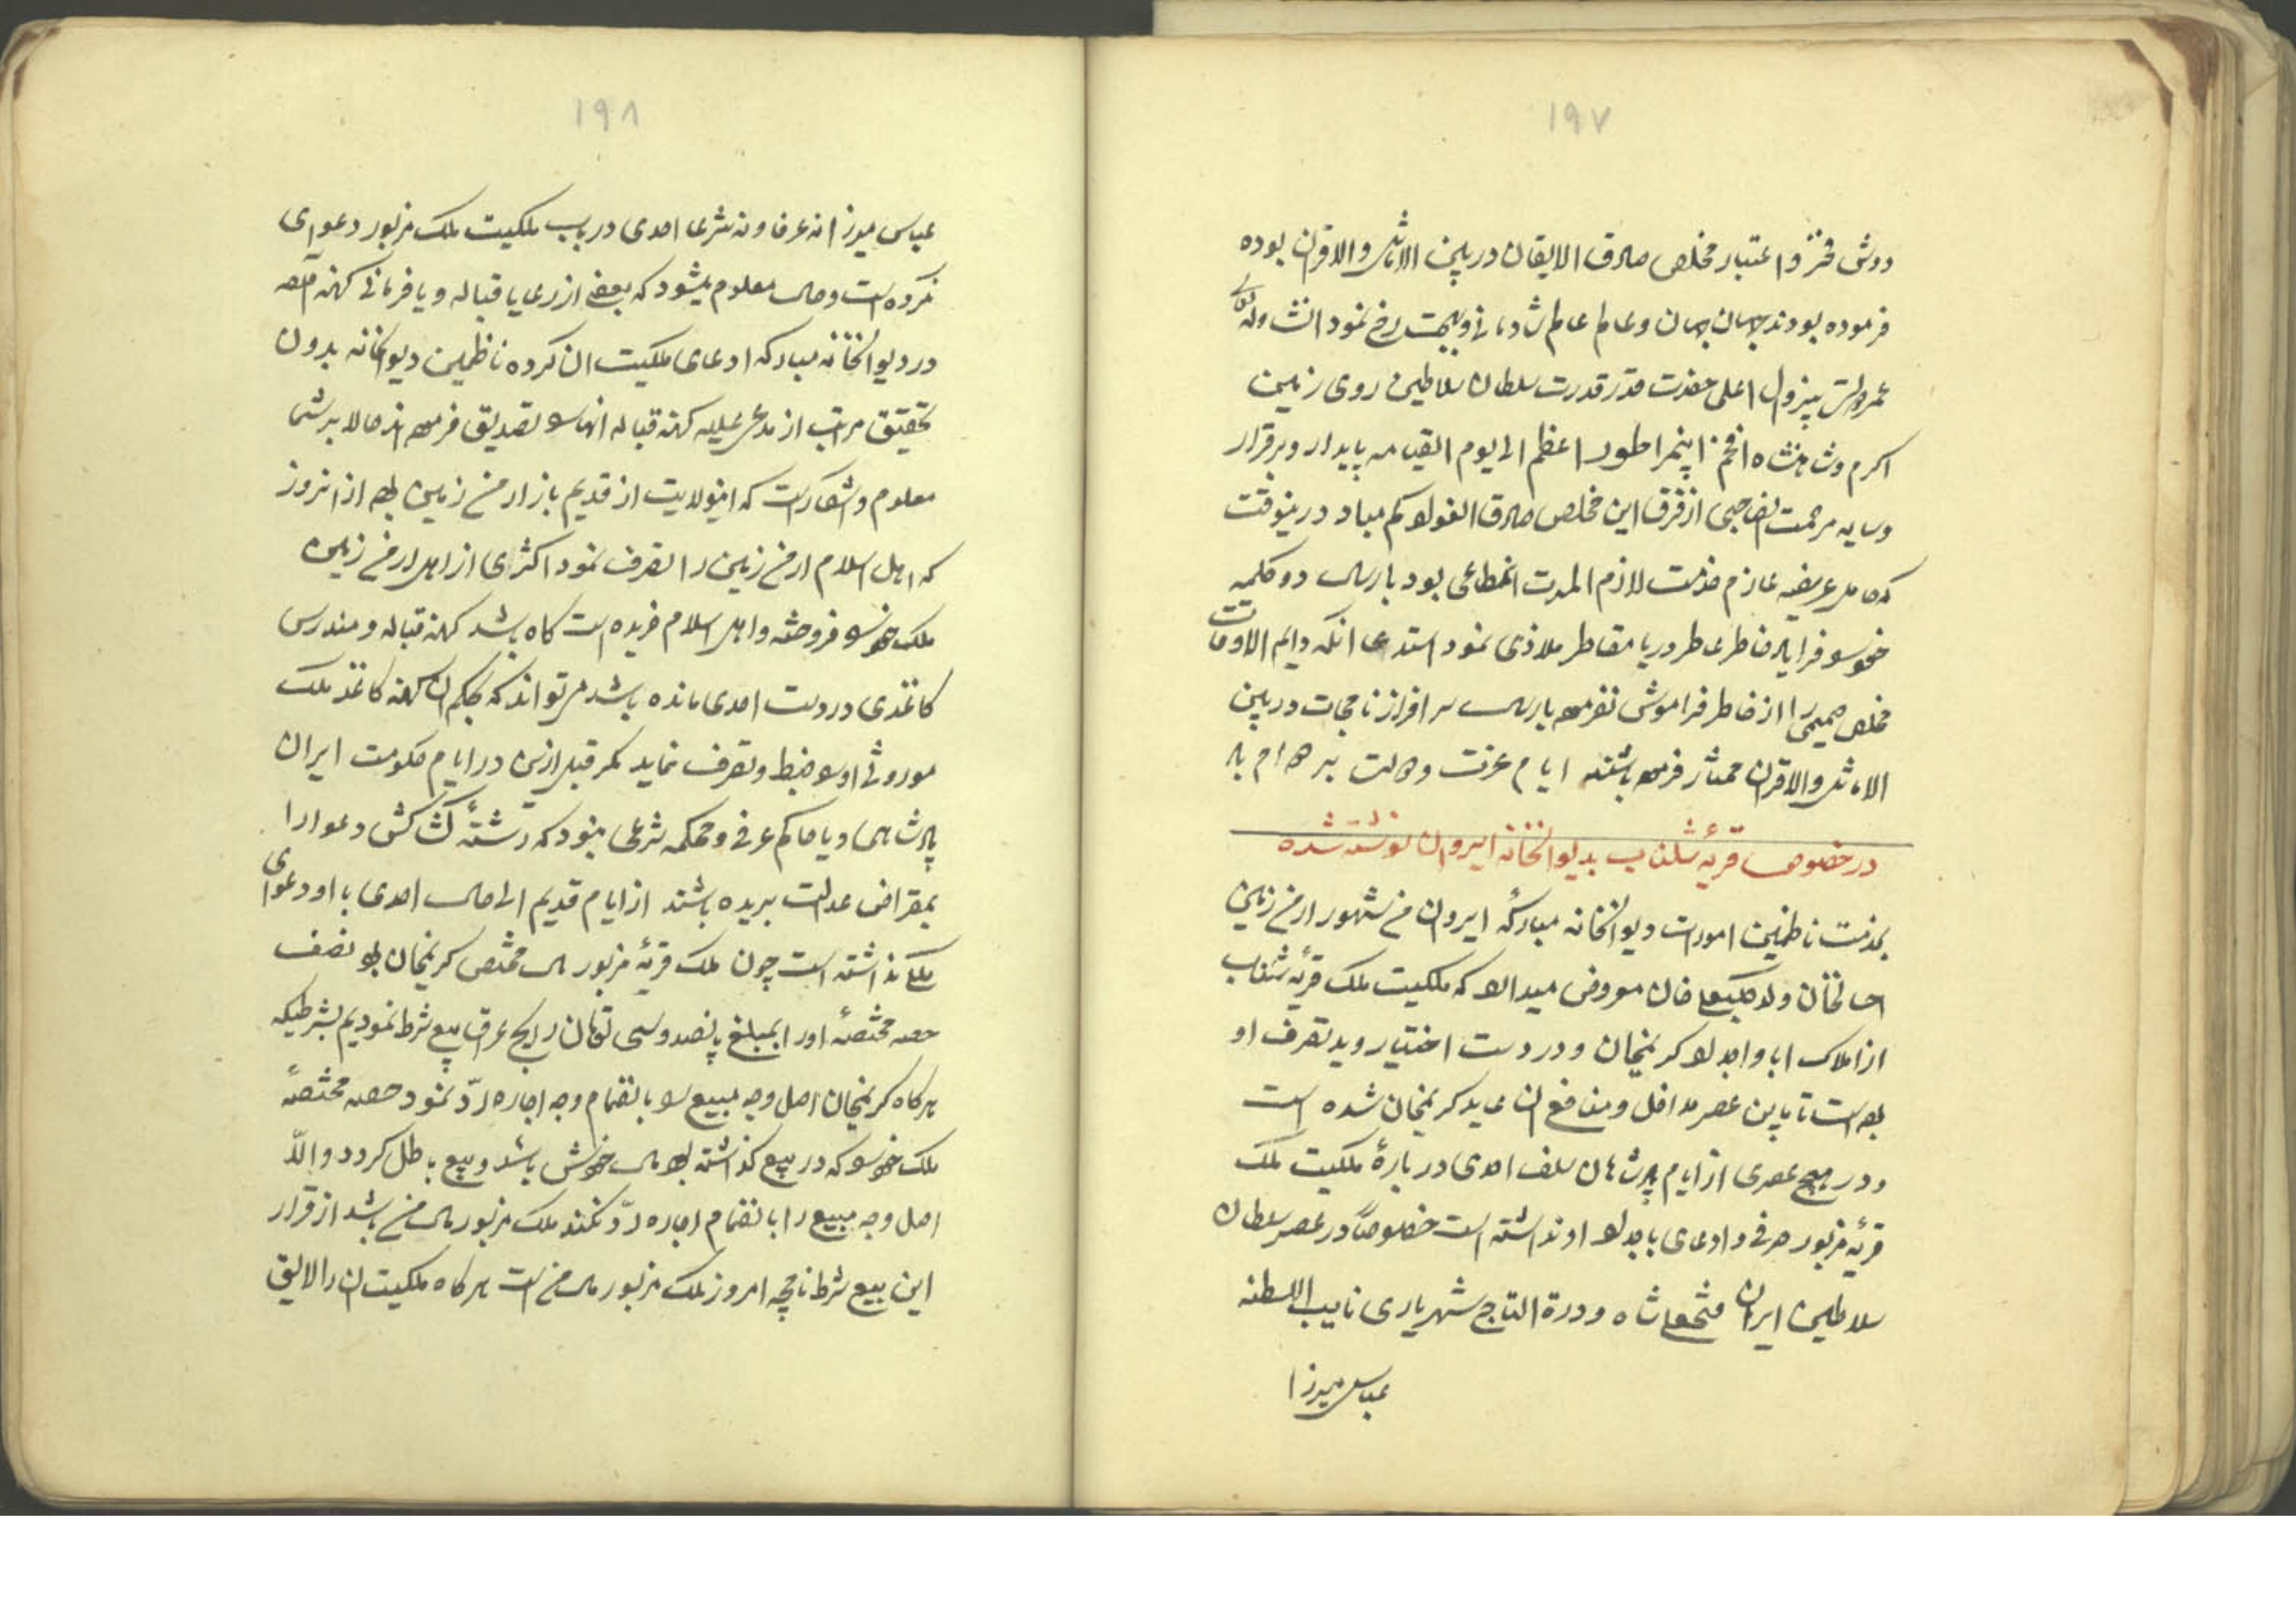 ۱۹۷
دوش فخر و اعتبار مخلص صادق الایقان در بین الاماثل و الاقران بوده
فرموده بودند جهان جهان و عالم عالم شادمانی و بهجت رخ نمود انشاء الله
عمر و دولت بیزوال اعلی حضرت قدر قدرت سلطان سلاطین روی زمین
اکرم و شاهنشاه افخم ایمپراطور اعظم الی یوم القیامه پایدار و برقرار
و سایه مرحمت صاحبی از فرق این مخلص صادق القول کم مباد درینوقت
که حامل عریضه عازم خدمت لازم المسرت بود بارسال دو کلمه
خود را فرایاد خاطر عاطر دریا مقاطر ملاذی نمود استدعا انکه دایم الاوقات
مخلص صمیمی را از خاطر فراموش نفرموده بارسال سرافراز نامجات در بین
الاماثل و الاقران ممتاز فرموده باشند ایام عزت و دولت بر دوام باد
در خصوص قریهٔ شلناب بدیوانخانه ایروان نوشته شده
بخدمت ناظمین امورات دیوانخانه مبارکهٔ ایروان من شهور ارمن زمین
خان ولد خان معروض میدارد که ملکیت ملک قریهٔ شلناب
از املاک ابا و اجداد کریمخان و در دست اختیار و ید تصرف او
بوده است تا باین عصر مداخل و منافع ان عاید کریمخان شده است
و در هیچ عصری از ایام پادشاهان سلف احدی در بارهٔ ملکیت ملک
قریهٔ مزبور حرفی و ادعای باجداد او نداشته است خصوصاً در عصر سلطان
سلاطین ایران فتحعلیشاه و درة التاج شهریاری نایب السلطنه
عباس میرزا
۱۹۸
عباس میرزا نه عرفا و نه شرعا احدی در باب ملکیت ملک مزبور دعوای
نکرده است و حال معلوم میشود که بعضی از رعایا قباله و یا فرمانی کهنه
در دیوانخانه مبارکه ادعای ملکیت ان کرده ناظمین دیوانخانه بدون
تحقیق مراتب از مدعی علیه کهنه قباله انها را تصدیق فرموده اند حالا بر شما
معلوم و اشکار است که اینولایت از قدیم باز ارمن زمین بوده از انروز
که اهل اسلام ارمن زمین را تصرف نمود اکثری از اهل ارمن زمین
ملک خود را فروخته و اهل اسلام خریده است کاه باشد کهنه قباله و مندرس
کاغذی در دست احدی مانده باشد میتواند که بحکم ان کهنه کاغذ ملک
موروثی او را ضبط و تصرف نماید مکر قبل ازین در ایام حکومت ایران
پادشاهی و یا حاکم عرفی و محکمه شرعی نبود که رشتهٔ کشاکش دعوا را
بمقراض عدالت بریده باشند از ایام قدیم الی حال احدی با او دعوای
ملکی نداشته است چون ملک قریهٔ مزبور مال مختص کریمخان بود نصف
حصه مختصهٔ او را بمبلغ پانصد و سی تومان رایج عراق بیع شرط نمودیم بشرطیکه
هرکاه کریمخان اصل وجه مبیع را بانضمام وجه اجاره ردّ نمود حصه مختصهٔ
ملک خود را که در بیع کذاشته بود مال خودش باشد و بیع باطل کردد و الاّ
اصل وجه مبیع را بانضمام اجاره ردّ نکند ملک مزبور مال من باشد از قرار
این بیع شرط نامچه امروز ملک مزبور مال من است هرکاه ملکیت ان را لایق